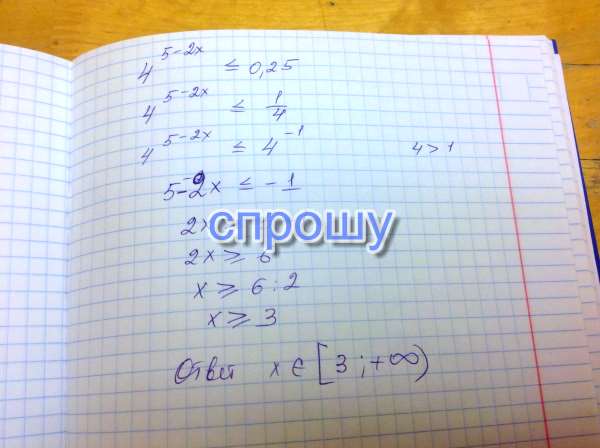 4^(5-2x) ≤ 0,25
4^(5-2x) ≤ 1/4
4^(5-2x) ≤ 4^(-1) 4 > 1
5-2x ≤ -1
спрошу
2x ≥ 6
x ≥ 6:2
x ≥ 3
Ответ x ∈ [3; +∞)